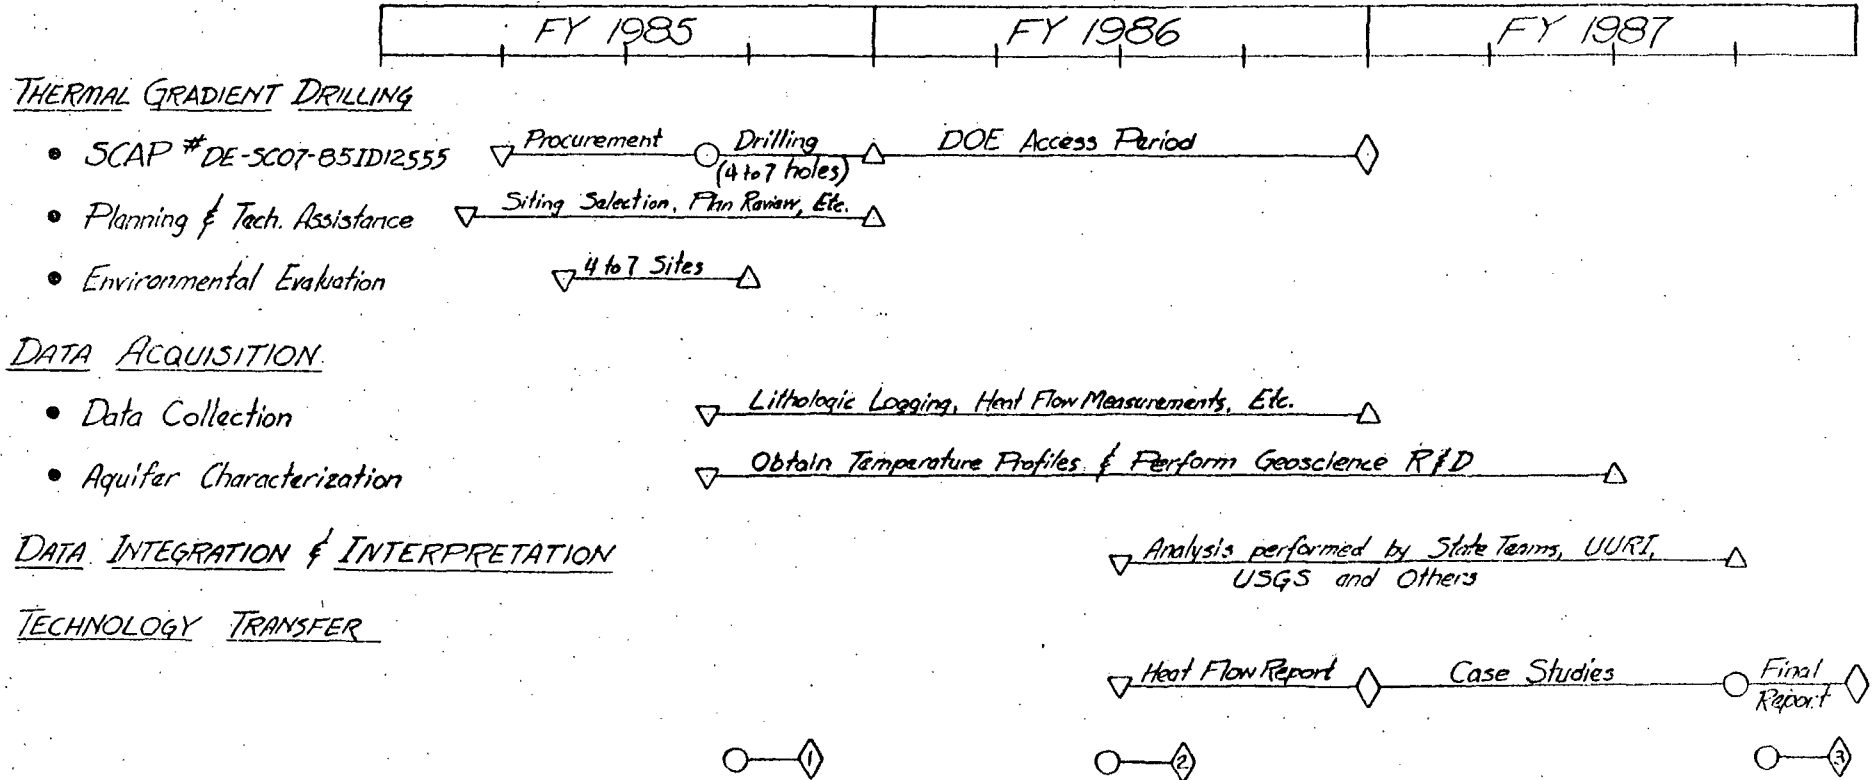 FY 1985 FY 1986 FY 1987
THERMAL GRADIENT DRILLING
• SCAP # DE-SC07-85ID12555 Procurement Drilling DOE Access Period
(4 to 7 holes)
• Planning & Tech. Assistance Siting Selection, Plan Review, Etc.
• Environmental Evaluation 4 to 7 Sites
DATA ACQUISITION
• Data Collection Lithologic Logging, Heat Flow Measurements, Etc.
• Aquifer Characterization Obtain Temperature Profiles & Perform Geoscience R&D
DATA INTEGRATION & INTERPRETATION Analysis performed by State Teams, UURI,
USGS and Others
TECHNOLOGY TRANSFER
Heat Flow Report Case Studies Final
Report
1 2 3